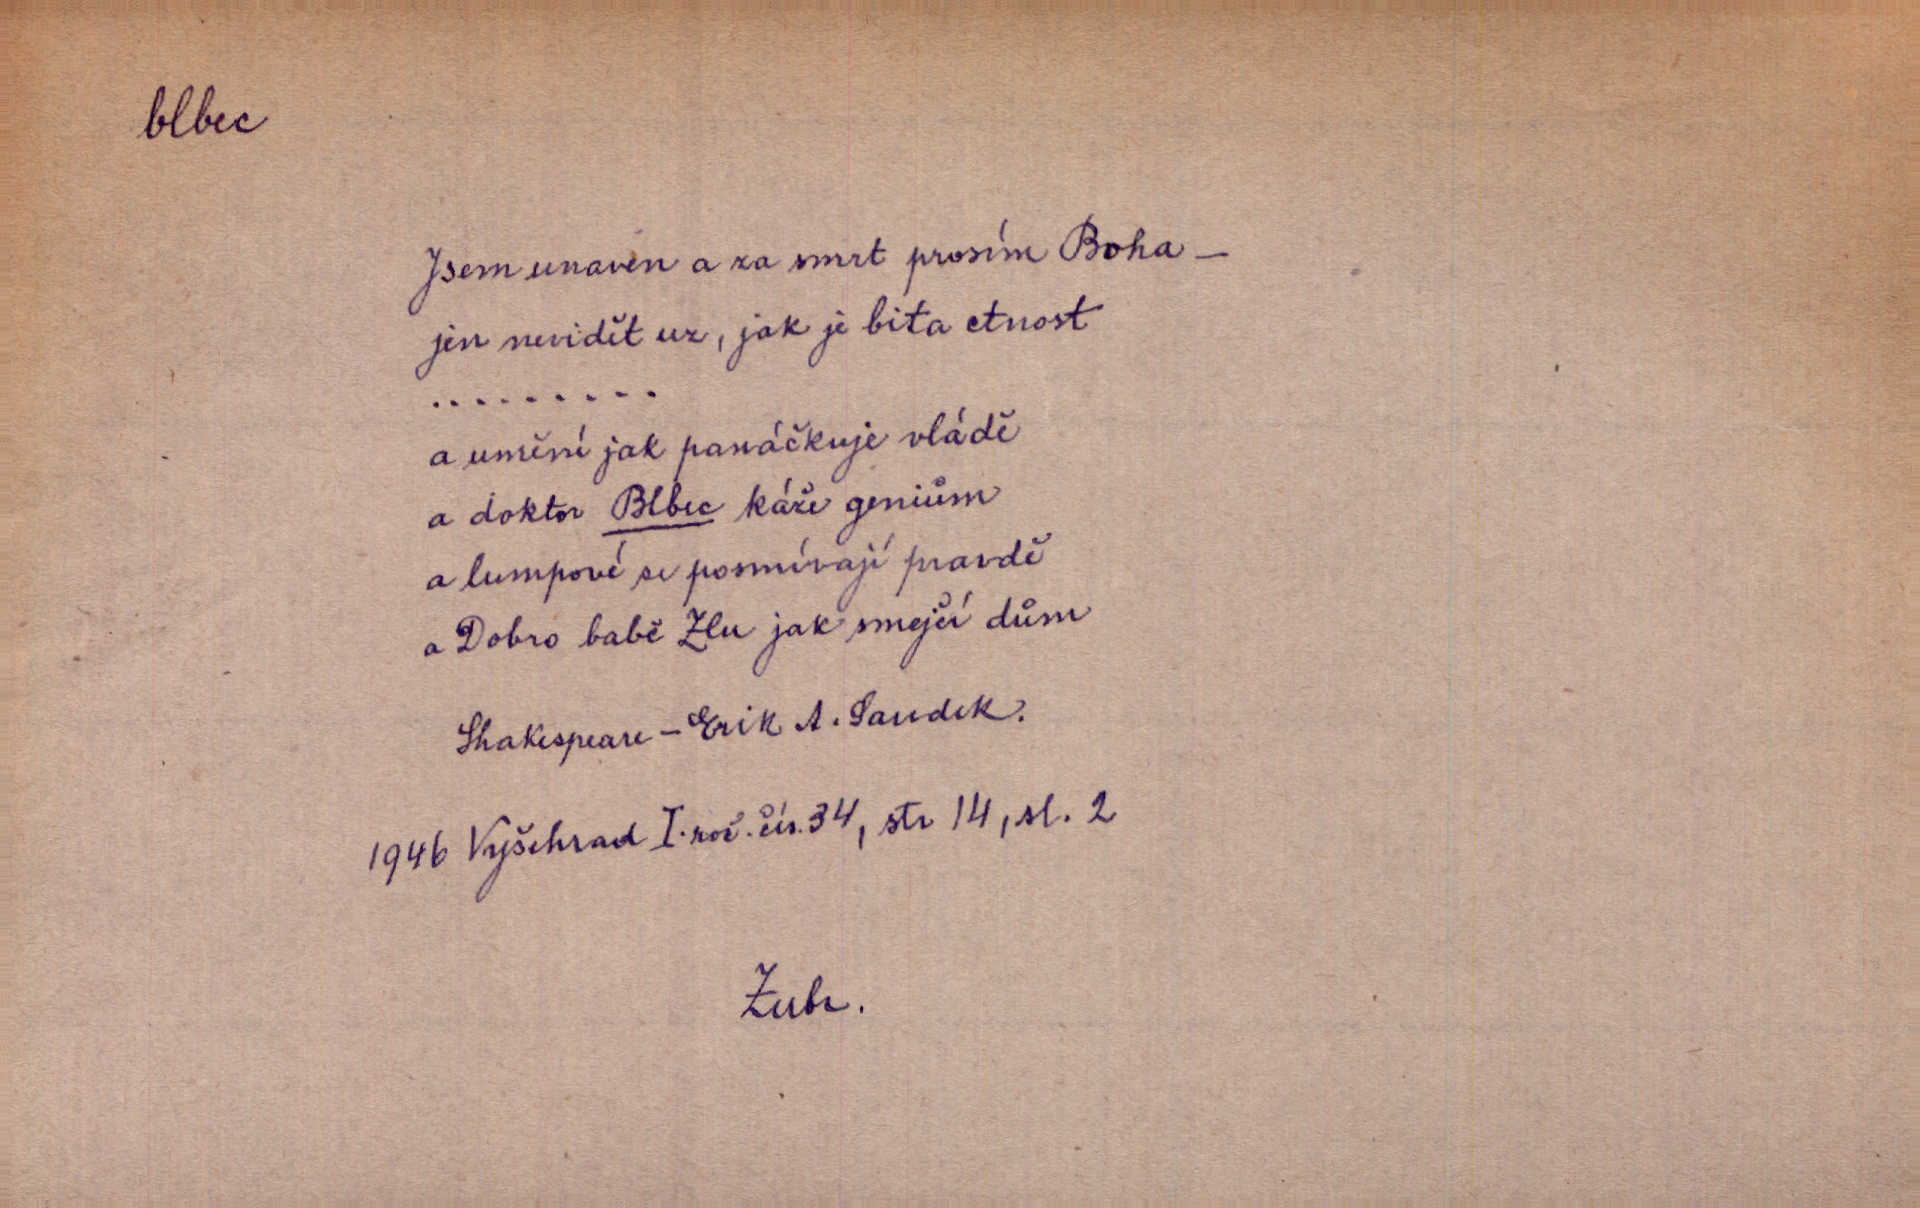 blbec
Jsem unaven a za smrt prosím Boha –
jen nevidět uz, jak je bita ctnost
.........
a umění jak panáčkuje vládě
a doktor Blbec káže geniům
a lumpové se posmívají pravdě
a Dobro babě Zlu jak smejčí dům
Shakespeare – Erik A. Saudek.
1946 Vyšehrad I. roč. čís. 34, str 14, sl. 2
Zubr.